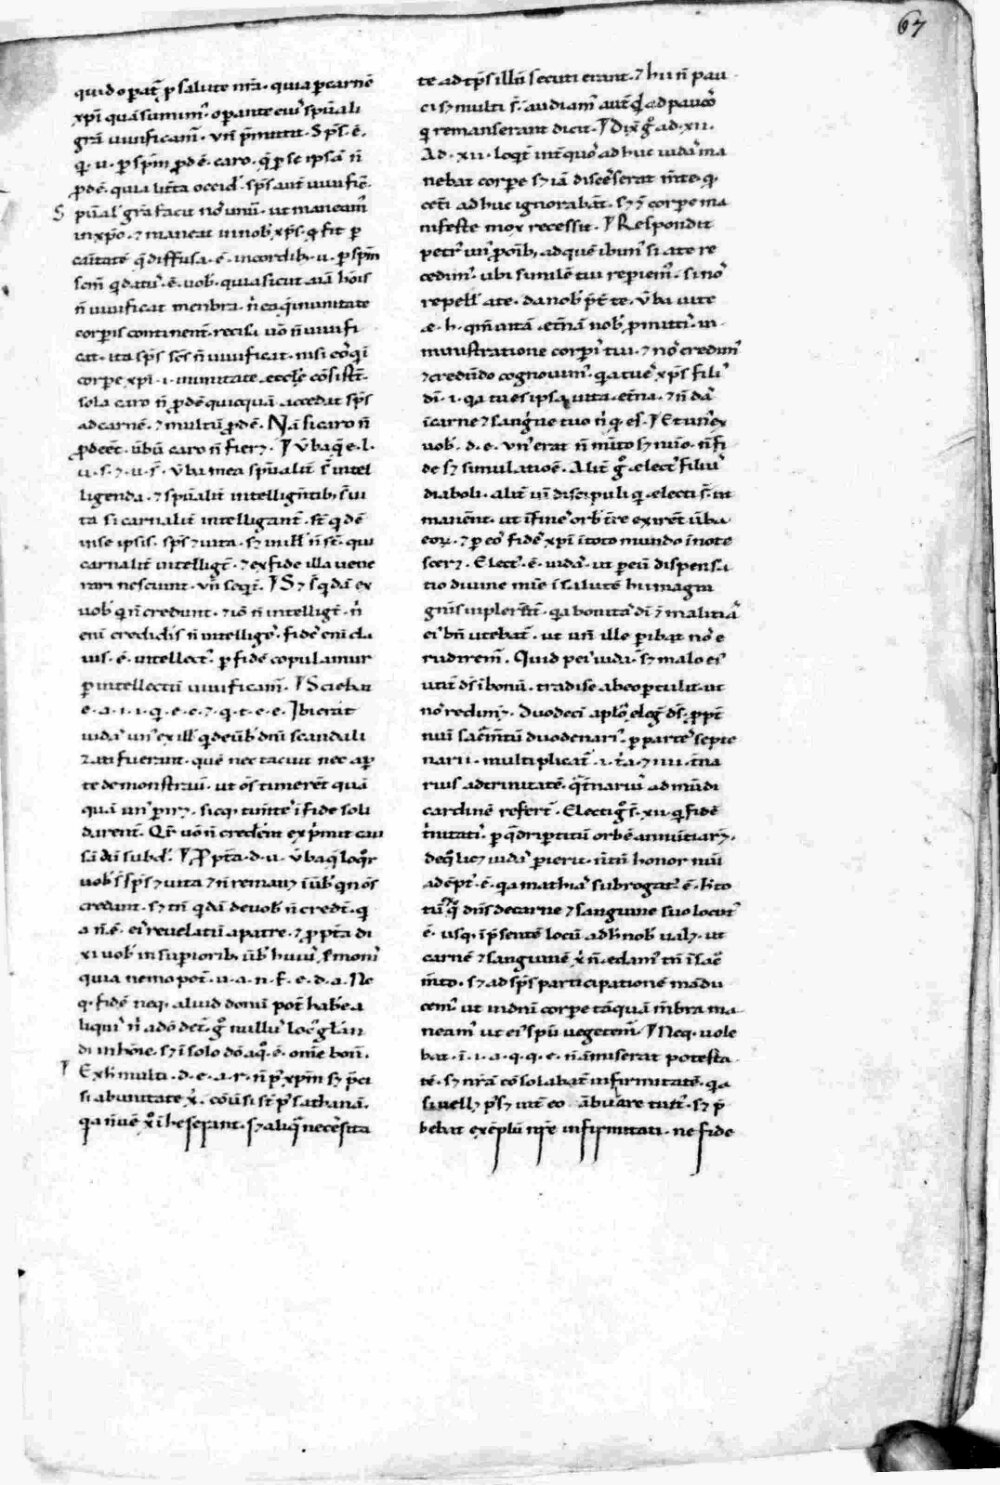 67
quid oꝑat᷑ ꝑ salute nr̄a. quia ꝑ carnē
xp̄i quā sumim᷒ oꝑante eius sp̄uali
gr̄a uiuificam᷒. Vn̄ p̄mittit. Sp̄s. ē.
q̇. u. ꝑ sp̄m ꝓdē. caro. q̇ ꝑ se ipsā n̄
ꝓdē. quia litt̄a occid̄. sp̄s aut̄ uiuific̄.
S pual̄ gr̄a facit nō unū. ut maneam᷒
in xp̄o. ⁊ maneat in nob̄ xp̄s. q̇ fit ꝑ
caritatē q̄ diffusa. ē. in cordib᷒. u. ꝑ sp̄m
sc̄m q̇ dat᷒. ē. uob̄. quia sicut aīa hōis
n̄ uiuificat menbra. n̄ ea q̄ in unitate
corporis continent᷑. recisa uō n̄ uiuifi
cat. ita sp̄s sc̄s n̄ uiuificat. nisi eos qui
corpe xp̄i. i. in unitate eccl̄e cōsist̄t.
sola caro n̄ ꝓdē quicquā accedat sp̄s
ad carnē. ⁊ multū ꝓdē. Nā si caro n̄
ꝓdeēt. ūbū caro n̄ fieret. V̄ba q̄ e. l.
u. s. ⁊. u. s̄. V̄ba mea sp̄ualit̄ s̄ intel
ligenda. ⁊ sp̄ualit̄ intelligentib᷒ s̄ ui
ta si carnalit̄ intelligant᷑. st̄ q̇dē
in se ipsis. sp̄s ⁊ uita. sꝫ nīll n̄ s̄t. qui
carnalit̄ intelligt̄. ⁊ ex fide illa uene
rari nesciunt. Vn̄ seqt᷑. Sꝫ s̄ q̇dā ex
uob̄ q̇ n̄ credunt. ⁊ iō n̄ intelligt̄. n̄
eni credidis n̄ intelligē. fidē eni cla
uis. ē. intellect᷒. ꝑ fidē copulamur
ꝑ intellectū uiuificam᷒. Sciebat
e. a. i. i. q. e. c. ⁊. q. t. e. e. Ibi erāt
iudas un᷒ ex illis q̇ de ūb̄ dn̄i scandali
zati fuerant. quē nec tacuit nec aꝑ
te demonstrauit. ut oēs timerēt quā
quā un᷒ ꝑiret. sicq᷒ timēte ī fide soli
darent᷑. Qr̄ uō n̄ crederēt exp̄mit cau
sā cū subd̄. Ꝓpt̄ea. d. u. V̄ba q̄ loqr̄
uob̄ s̄ sp̄s ⁊ uita ⁊ n̄ remanꝫ ī ūb̄ q̇ n̄ os
credant. sꝫ tn̄ q̇dā de uob̄ n̄ credt̄. q̇
a n̄. ē. eis reuelatū a patre. ⁊ ꝓpt̄ea di
xi uob̄ in suꝑiorib᷒ ūb̄ huius s̄monis
quia nemo pot̄. u. a. n. f. e. d. a. Ne
q᷒ fidē neq᷒ aliud donū pot̄ habe a
liquis n̄ a dō det᷑. g̊ nullus loc᷒ gl̄an
di in hōie. sꝫ ī solo dō a q̊. ē. om̄e bon̄.
Exh̄ multi. d. e. a. r. n̄ p᷒ xp̄m sꝫ p̄ci
si ab unitate x̄. cōuersi s̄t p᷒ sathanā.
qa n̄ uē x̊ ī heserant. sꝫ aliq̄ necessita
te ad tp̄s illū secuti erant. ⁊ hii n̄ pau
ci sꝫ multi s̄. audiam᷒ aut̄ q̇d ad paucos
q̇ remanserant dicit. Dix̄ g̊ ad. xii.
Ad. xii. loqt᷑ int̄ quos ad huc iudas ma
nebat corpe sꝫ iā discesserat m̄te. q̇
cet̄i ad huc ignorabāt. sꝫ ꝫ̄ corpe ma
nifeste mox recessit. Respondit
petr᷒ un᷒ ꝑ om̄ib᷒, ad quē ibim᷒ si a te re
cedim᷒. ubi similē tui reꝑiem᷒. si nos
repell̄ a te. da nob̄ p̄t̄ te. V̄ba uite
e. h. qm̄ uitā et̄nā nob̄ ꝓmittis in
ministratione corpis tui. ⁊ nos credim᷒
⁊ credēdo cognouim᷒. qa tu es xp̄s fili᷒
dī. i. qa tu es ipsa uita et̄na. ⁊ n̄ das
ī carne ⁊ sanguine tuo n̄ q̇ es. Et un᷒ ex
uob̄. d. e. Vn᷒ erat n̄ m̄ito sꝫ nūo. n̄ fi
de sꝫ simulatiōe. Alit̄ g̊ elect᷒ filius
diaboli. alit̄ uī discipuli q̇ electi s̄. ut
manērt. ut ī fines orb̄ t̄re exirēt ūba
eoꝝ. ⁊ ꝑ eos fidē xp̄i ī toto mundo inote
sceret. Elect᷒. ē. iudas. ut ꝑ eū dispensa
tio diuine mīe ī salutē humani
gn̄is inpleret᷑. qa bonitas dī ī malitiā
ei᷒ bn̄ utebat᷑. ut un̄ ille ꝑibat nos e
rudirem᷒. Quid pei᷒ iudas, sꝫ malo ei᷒
utit᷑ ds̄ ī bonū. tradi se ab eo ꝑtulit. ut
nos redimꝫ. Duodeci aplōs eleg̊ ds̄. ꝓpt̄
nui sacm̄tū duodenari᷒. ꝑ partes septe
narii. multiplicat᷑. i. t̄a. ⁊ iiii. t̄na
rius ad trinitatē. qt̄narius ad mūdi
cardinē refert᷑. Electi g̊ s̄. xii. q̇ fidē
t̄nitatis. ꝑ q̇driꝑtitū orbē annūtiarꝫ.
de q̇ licꝫ iudas ꝑierit. n̄ tn̄ honor nūi
adēpt᷒. ē. qa mathias subrogat᷒. ē. H̄ to
tū q̇ dn̄s de carne ⁊ sanguine suo locut᷒
ē. usq᷒ ī p̄sentē locū ad h̄ nob̄ ualꝫ. ut
carnē ⁊ sanguinē x̄ n̄. edam᷒ tn̄ ī sac
m̄to. sꝫ ad sp̄s participationē mādu
cem᷒ ut in dn̄i corpe tāquā m̄bra ma
neam᷒ ut ei᷒ spū uegetem᷒. Neq᷒ uole
bat. i. i. a. q. q. e. n̄ amiserat potesta
tē. sꝫ nr̄ā cōsolabat᷑ infirmitatē. qa
si uellꝫ p̄sꝫ int̄ eos ābulare tut᷒. sꝫ p̄
bebat exēplū nr̄e infirmitati. ne fide